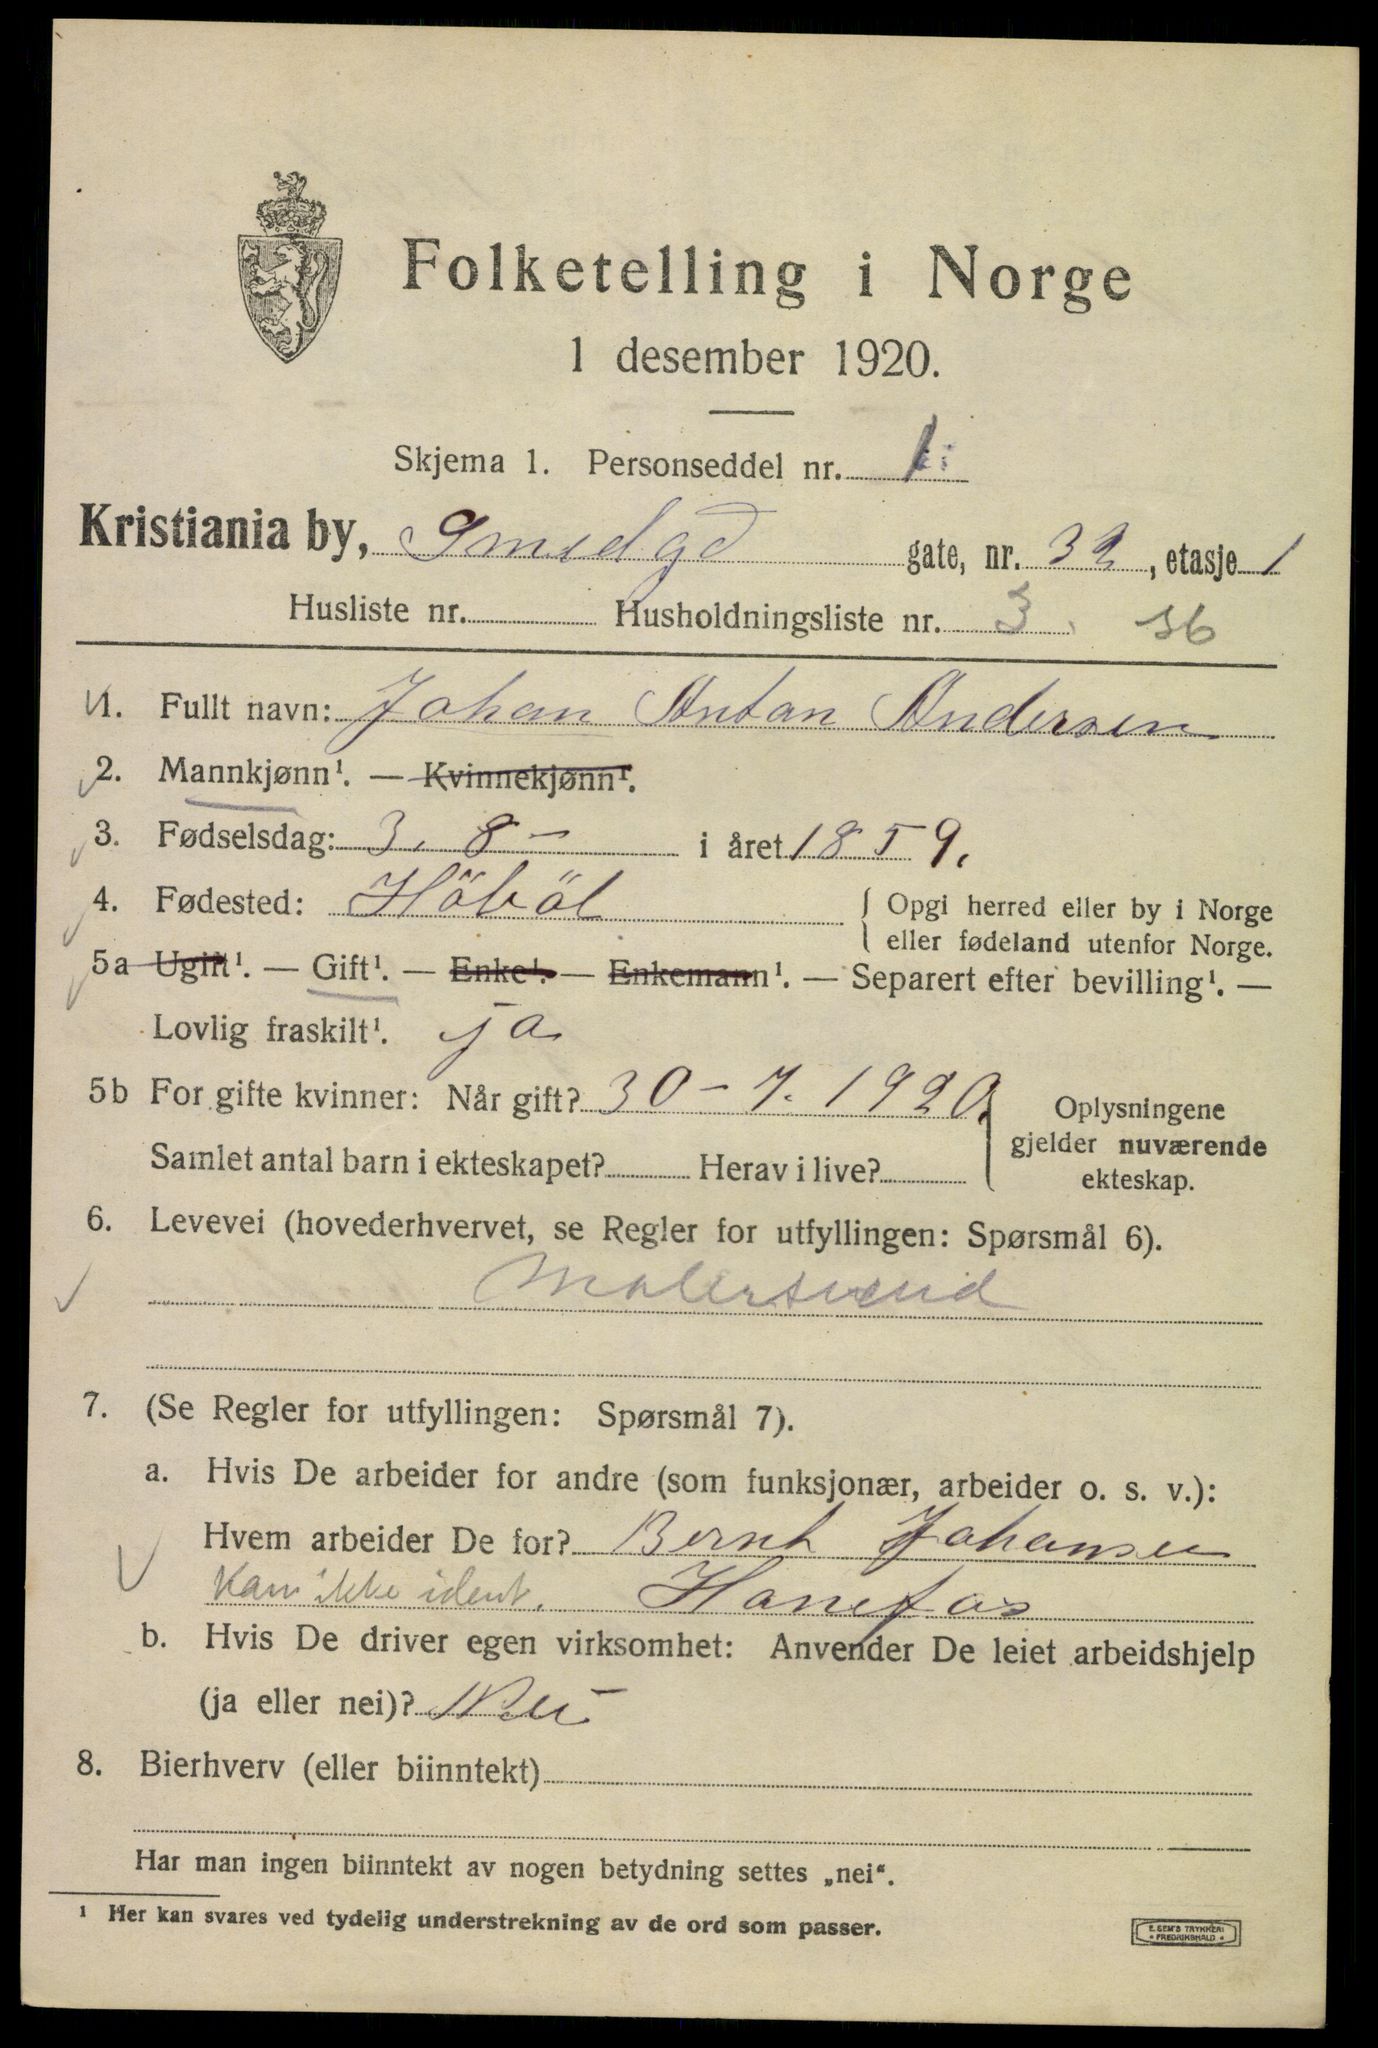 Folketelling i Norge
1 desember 1920.
Skjema 1. Personseddel nr. 1
Kristiania by, Smedgd gate, nr. 32, etasje 1
Husliste nr. Husholdningsliste nr. 3. 36
1. Fullt navn: Johan Anton Andersen
2. Mannkjønn¹. — Kvinnekjønn¹.
3. Fødselsdag: 3. 8 — i året 1859.
4. Fødested: Höböl { Opgi herred eller by i Norge
eller fødeland utenfor Norge.
5a Ugift¹. — Gift¹. — Enke¹. — Enkemann¹. — Separert efter bevilling¹. —
Lovlig fraskilt¹. ja
5b For gifte kvinner: Når gift? 30 - 7. 1920. Oplysningene
gjelder nuværende
Samlet antal barn i ekteskapet? Herav i live? ekteskap.
6. Levevei (hovederhvervet, se Regler for utfyllingen: Spørsmål 6).
Malersvend
7. (Se Regler for utfyllingen: Spørsmål 7).
a. Hvis De arbeider for andre (som funksjonær, arbeider o. s. v.):
Hvem arbeider De for? Bernt Johansen
Kan ikke ident. Hønefos
b. Hvis De driver egen virksomhet: Anvender De leiet arbeidshjelp
(ja eller nei)? Nei
8. Bierhverv (eller biinntekt)
Har man ingen biinntekt av nogen betydning settes „nei“.
¹ Her kan svares ved tydelig understrekning av de ord som passer.
E. SEM'S TRYKKERI
• FREDRIKSHALD •